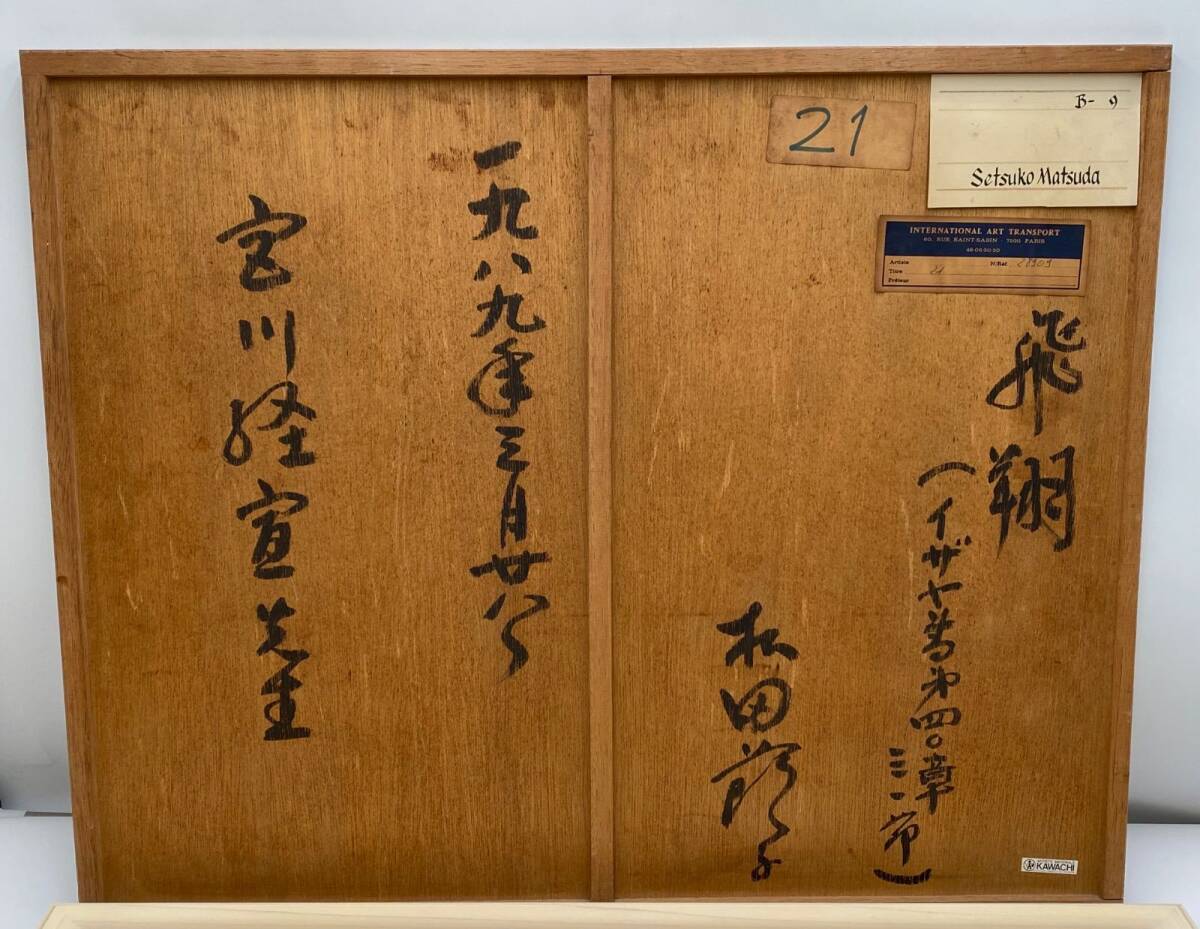 21
B- 9
Setsuko Matsuda
INTERNATIONAL ART TRANSPORT
60, RUE SAINT-SABIN - 7500 PARIS
Artiste
N/Ref 28909
Titre 21
Prêteur
飛翔
(イザヤ書第四〇章
三一節)
松田節子
一九八九年三月廿八日
宮川経宣先生
KAWACHI